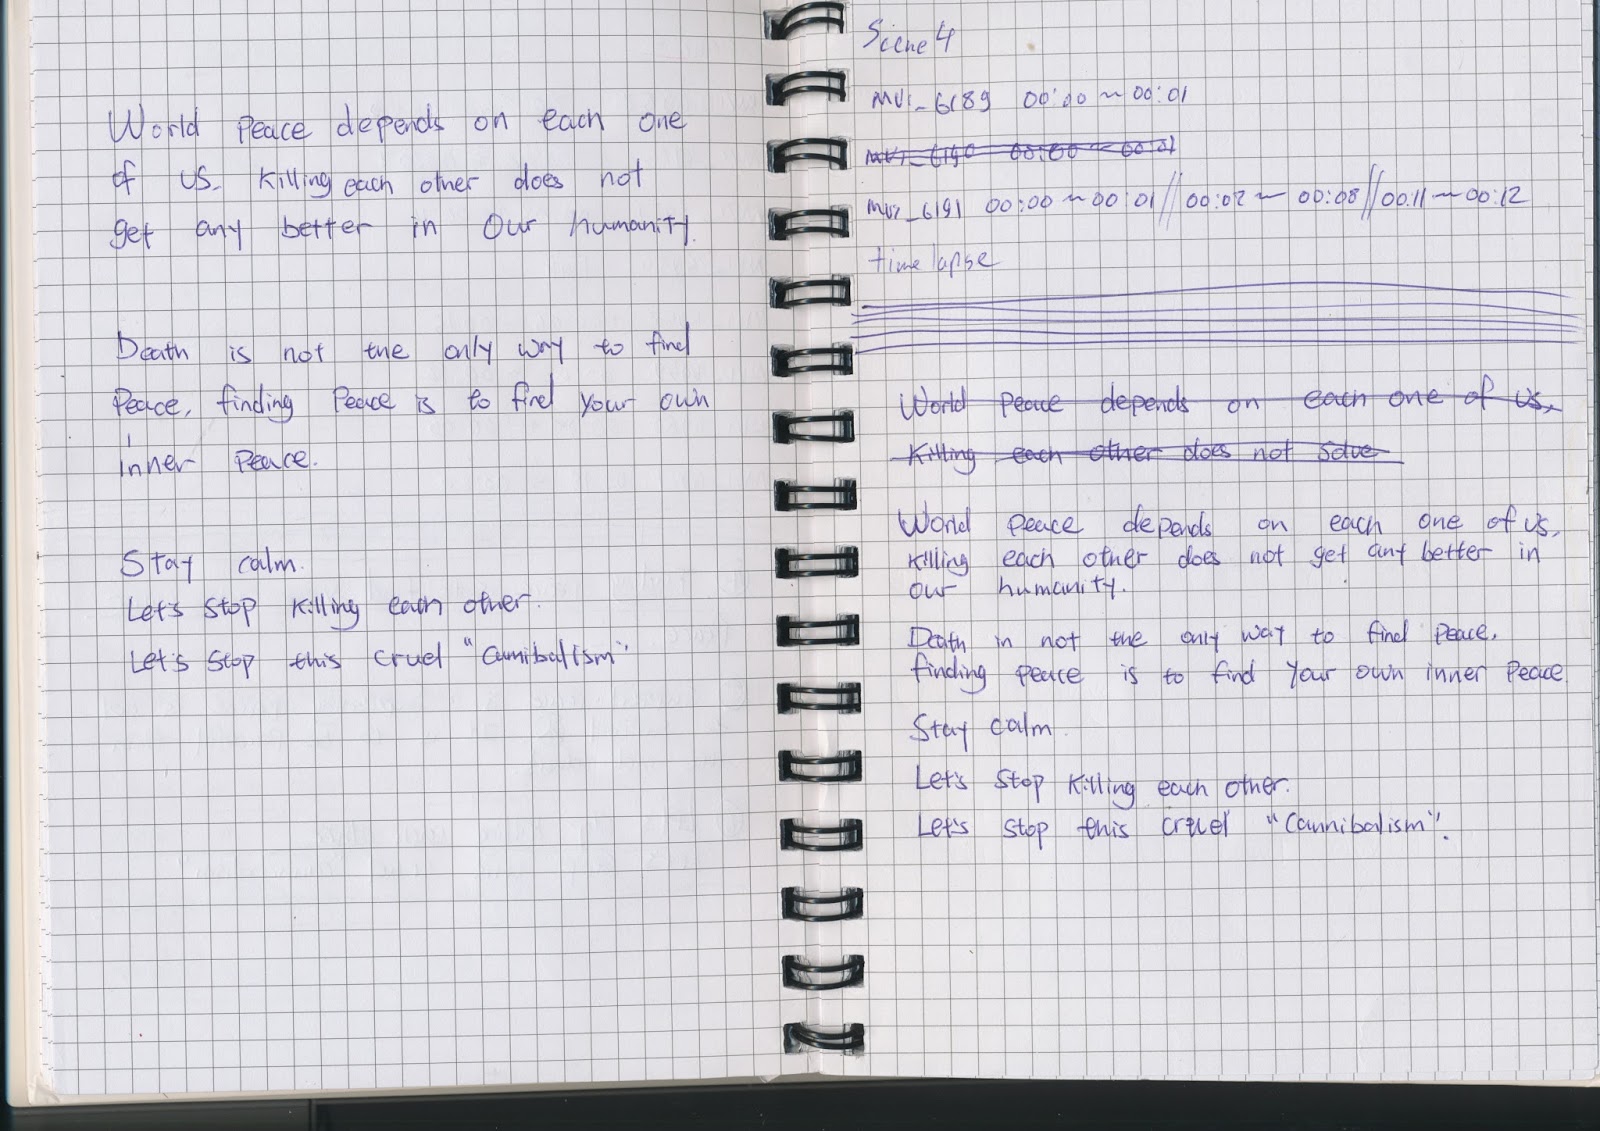 World Peace depends on each one
of us. Killing each other does not
get any better in our humanity.
Death is not the only way to find
Peace, finding Peace is to find your own
inner Peace.
Stay calm.
Let's stop killing each other.
Let's stop this cruel "Cannibalism"
Scene 4
MVI_6189 00:00 ~ 00:01
MVI_6190 00:00 ~ 00:01
MVI_6191 00:00 ~ 00:01 // 00:02 ~ 00:08 // 00:11 ~ 00:12
time lapse
World Peace depends on each one of us,
Killing each other does not solve
World peace depends on each one of us,
killing each other does not get any better in
our humanity.
Death in not the only way to find peace,
finding peace is to find your own inner Peace
Stay calm.
Let's stop killing each other.
Let's stop this cruel "Cannibalism".